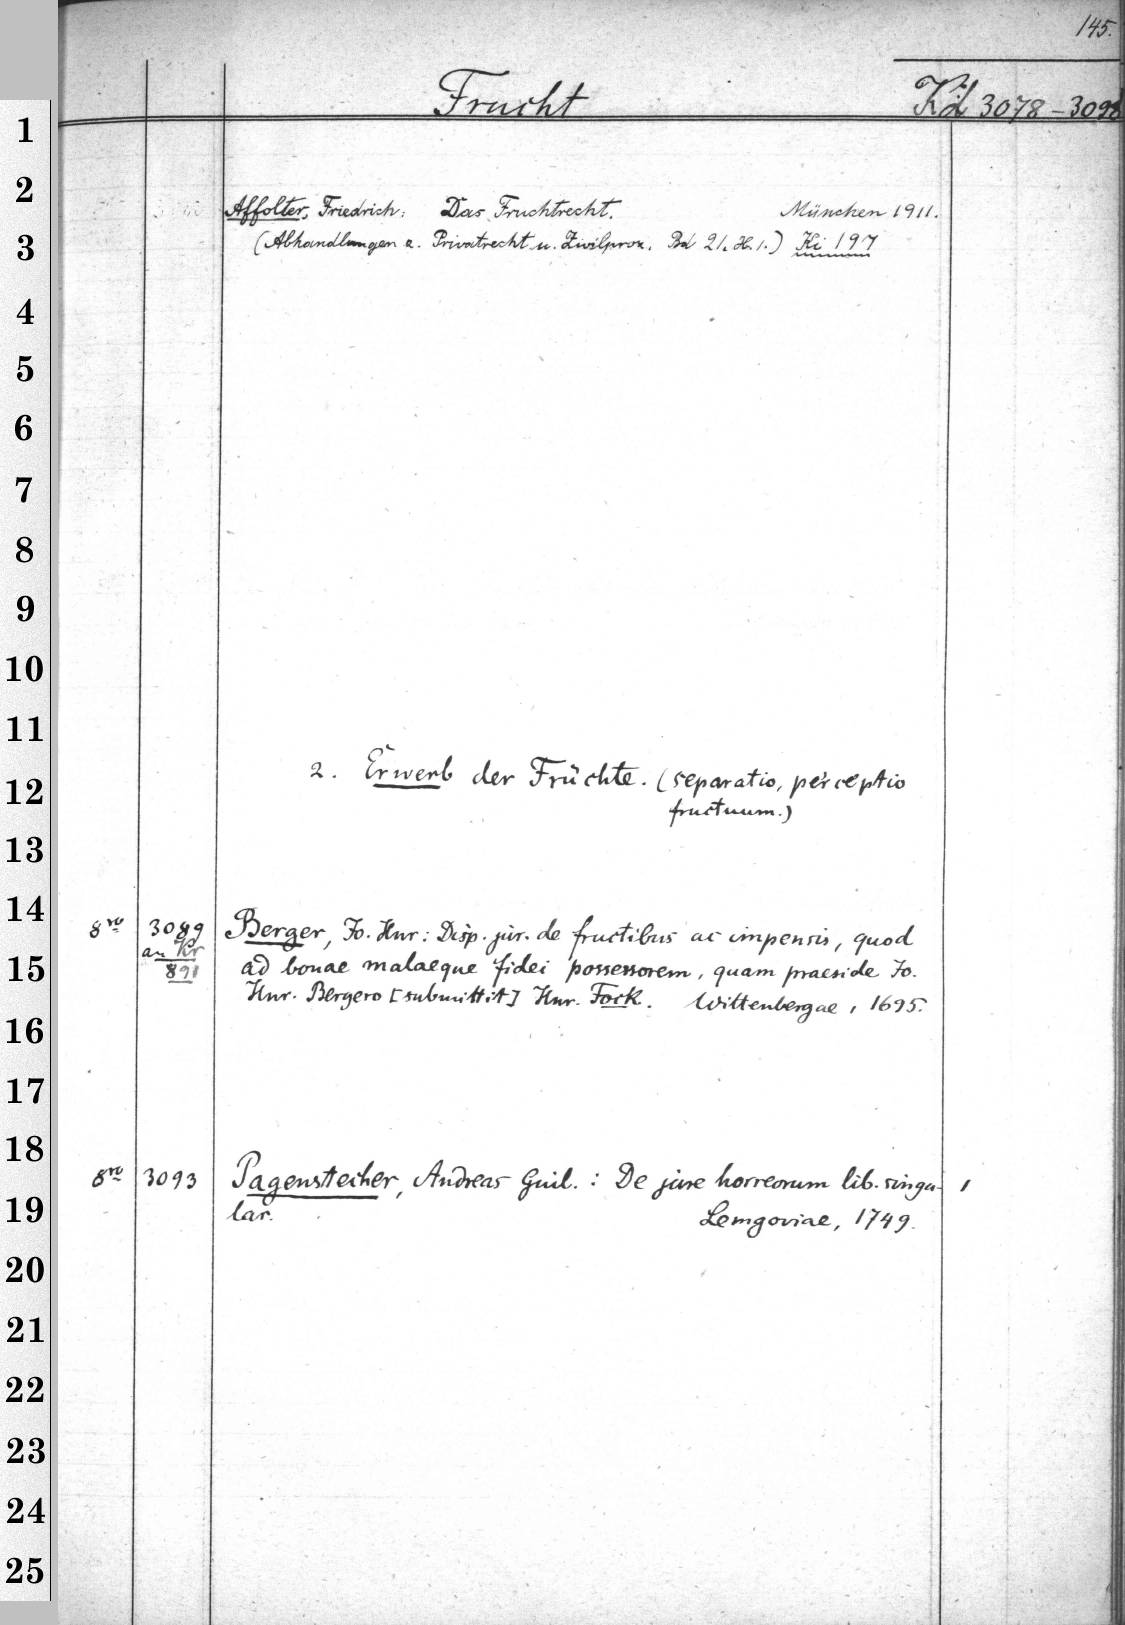 145.
Frucht Kd 3078-3098
1
2
Affolter, Friedrich: Das Fruchtrecht. München 1911.
3 (Abhandlungen z. Privatrecht u. Zivilproz. Bd 21. H. 1.) Ki 197
4
5
6
7
8
9
10
11
2. Erwerb der Früchte. (separatio, perceptio
12
fructuum.)
13
14
8vo 3089 Berger, Jo. Hnr: Disp. jur. de fructibus ac impensis, quod
an Kr
15 891 ad bonae malaeque fidei possessorem, quam praeside Jo.
Hnr. Bergero [submittit] Hnr. Fock. Wittenbergae, 1695.
16
17
18
8vo 3093 Pagenstecher, Andreas Guil.: De jure horreorum lib. singu- 1
19 lar. Lemgoviae, 1749.
20
21
22
23
24
25